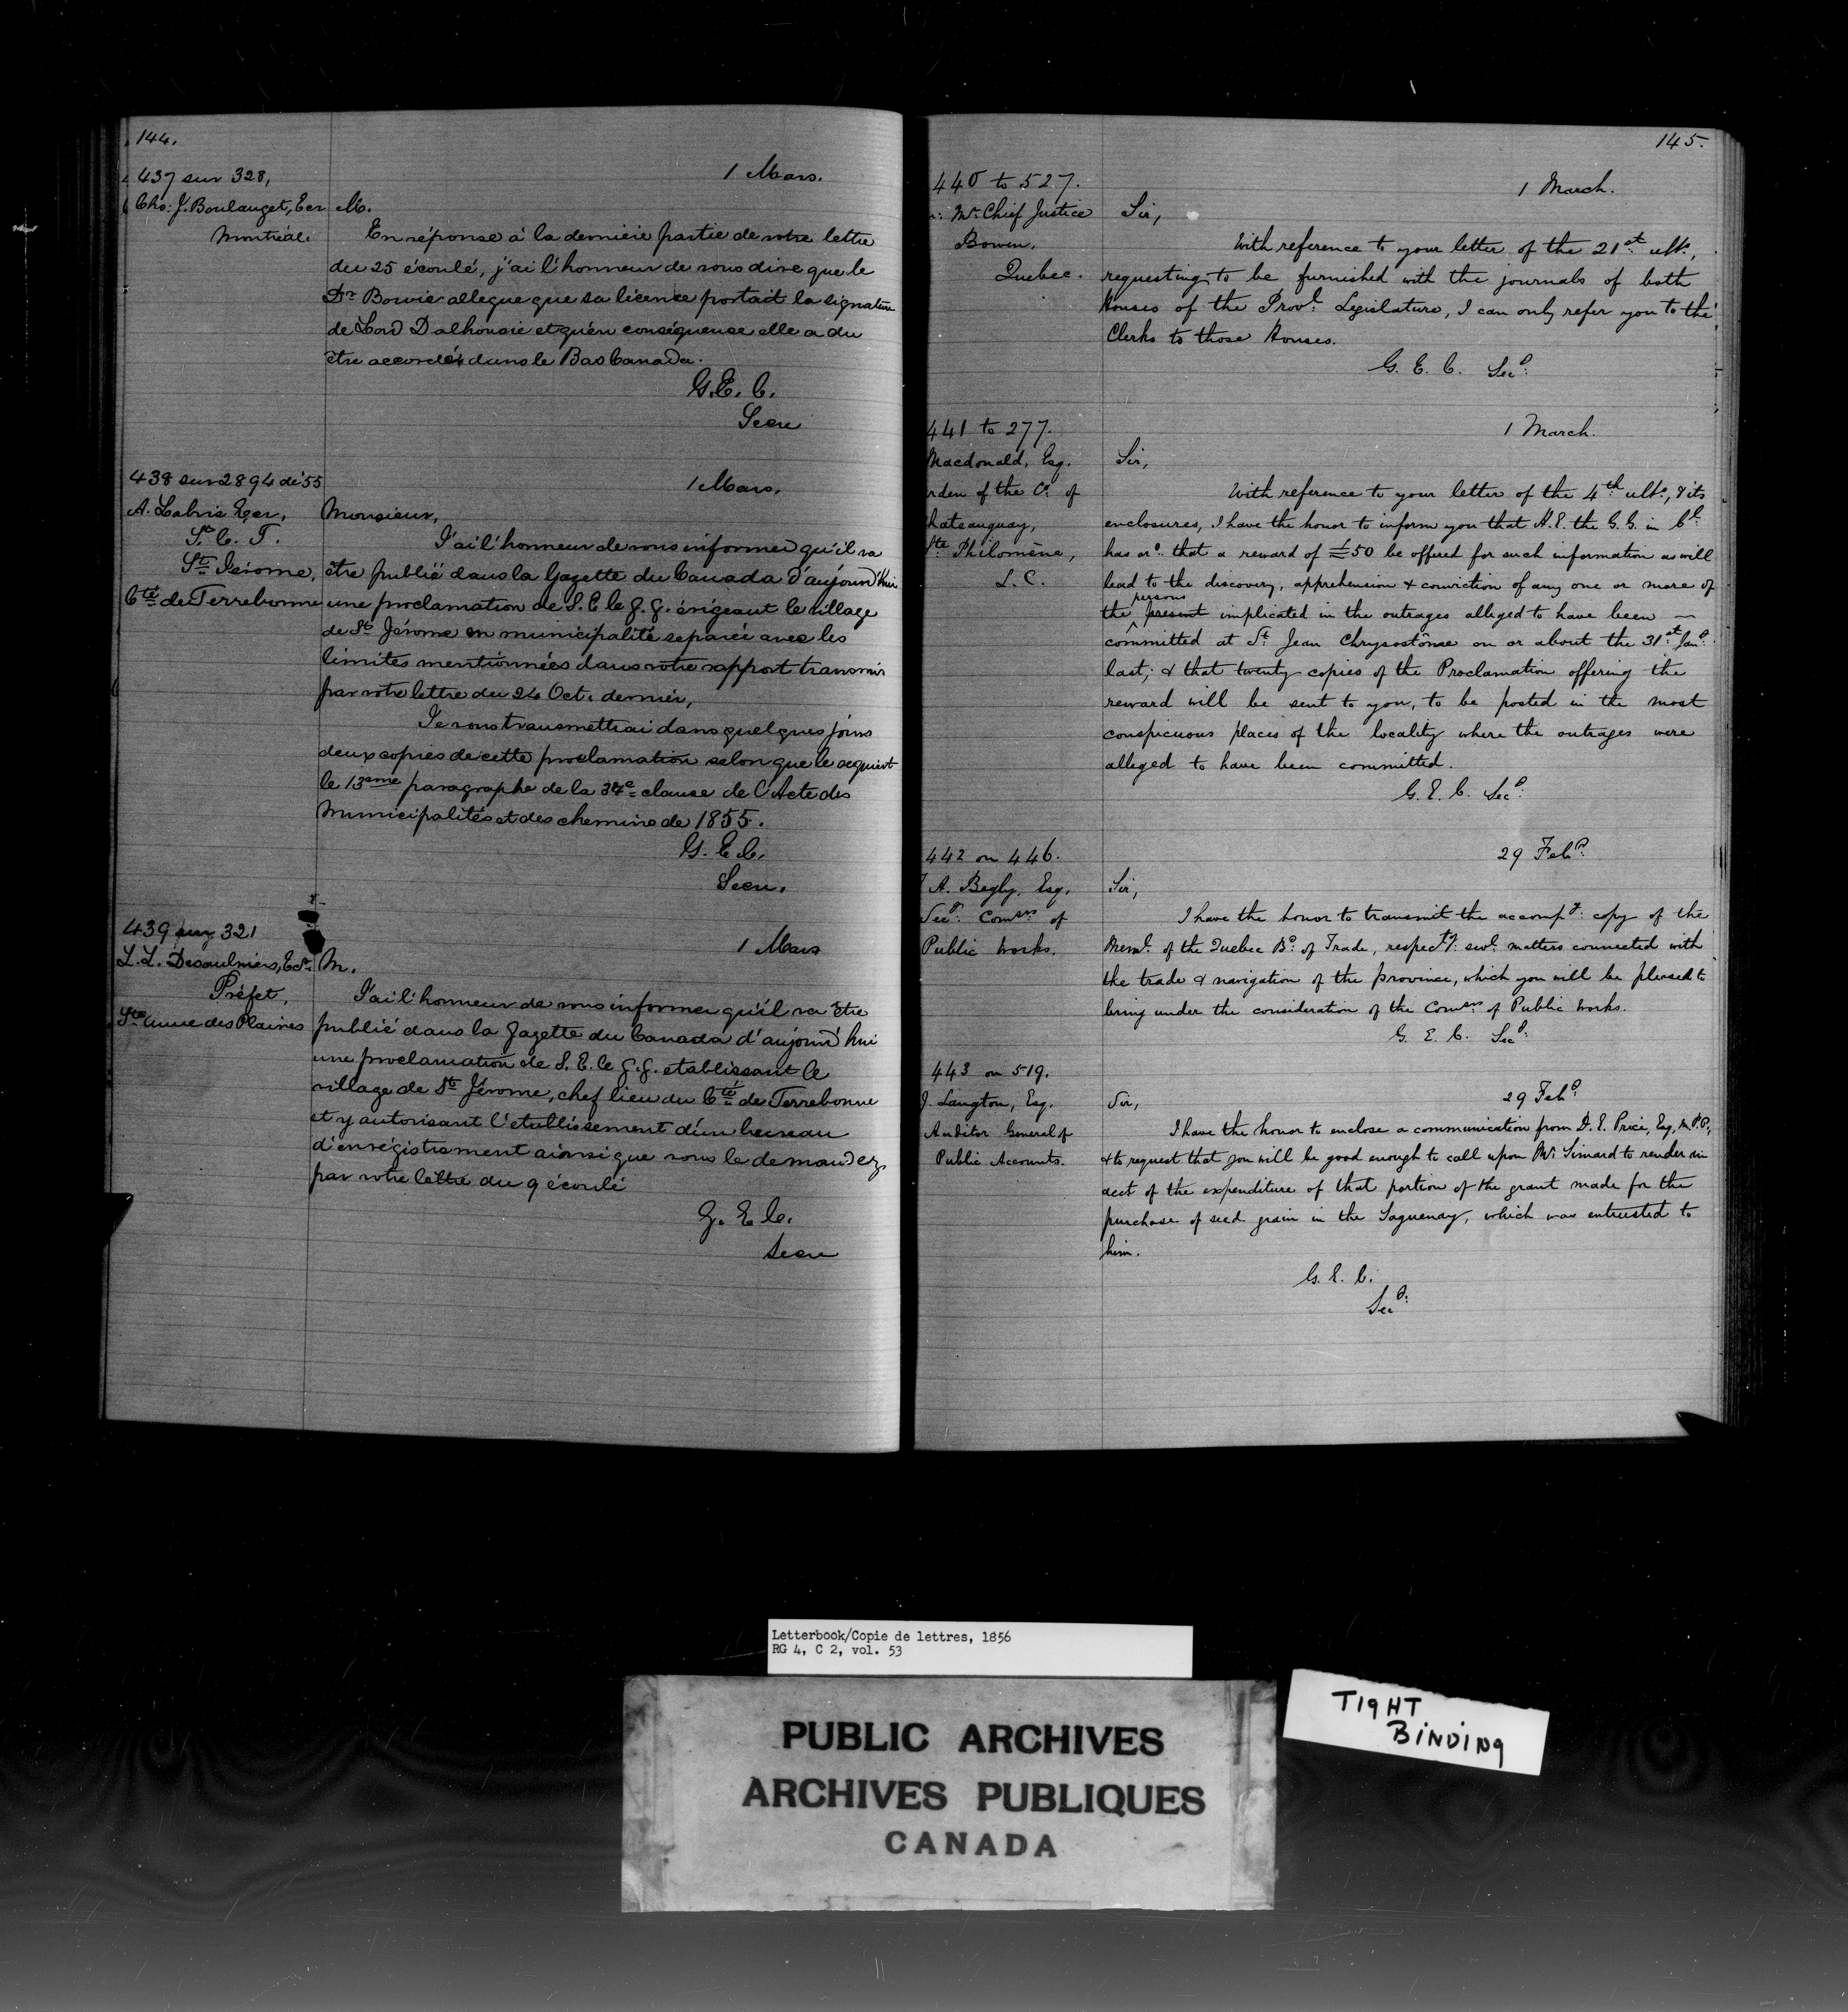 144.
437 sur 328,
1 Mars.
Chs: J. Boulanget, Ecr
Montréal.
M.
En réponse à la dernière partie de votre lettre
du 25 écoulé, j'ai l'honneur de vous dire que le
Dr Bowie allegue que sa licence portait la signature
de Lord Dalhousie et qu'en conséquence elle a du
être accordée dans le Bas Canada.
G. E. C.
Secre
438 sur 2894 de 55
1 Mars.
A. Labrie Ecr,
S. C. T.
St. Jérome,
Cté de Terrebonne
Monsieur,
J'ai l'honneur de vous informer qu'il va
être publié dans la Gazette du Canada d'aujourd'hui
une proclamation de S. E. le G. G. érigeant le village
de St Jérome en municipalité separée avec les
limites mentionnées dans votre rapport transmis
par votre lettre du 24 Oct. dernier,
Je vous transmettrai dans quelques jours
deux copies de cette proclamation selon que le requiert
le 13eme paragraphe de la 34e clause de l'Acte des
Municipalités et des chemins de 1855.
G. E. C.
Secre.
439 sur 321
1 Mars
L. L. Desaulniers, Ecr.
Préfet,
Ste Anne des Plaines
M.
J'ai l'honneur de vous informer qu'il va être
publié dans la Gazette du Canada d'aujourd'hui
une proclamation de S. E. le G. G. etablissant le
village de St Jérome, chef lieu du Cté de Terrebonne
et y autorisant l'etablissement d'un bureau
d'enrégistrement ainsi que vous le demandez
par votre lettre du 9 écoulé
G. E. C.
Secre
145.
440 to 527.
1 March.
Mr. Chief Justice
Bowen,
Quebec.
Sir,
With reference to your letter of the 21st ulto,
requesting to be furnished with the journals of both
Houses of the Provl. Legislature, I can only refer you to the
Clerks to those Houses.
G. E. C. Secy.
441 to 277.
1 March.
Macdonald, Esq.
rden of the Co. of
hateauguay,
Ste Philomène,
L. C.
Sir,
With reference to your letter of the 4th ulto., & its
enclosures, I have the honor to inform you that H. E. the G. G. in Cl.
has ord. that a reward of £50 be offered for such information as will
lead to the discovery, apprehension & conviction of any one or more of
persons
the present implicated in the outrages alleged to have been
committed at St. Jean Chrysostôme on or about the 31st. Jany.
last; & that twenty copies of the Proclamation offering the
reward will be sent to you, to be posted in the most
conspicuous places of the locality where the outrages were
alleged to have been committed.
G. E. C. Secy.
442 on 446.
29 Feby.
A. Begly, Esq.
Secy. Comsrs of
Public Works.
Sir,
I have the honor to transmit the accompg. copy of the
Meml. of the Quebec Bd. of Trade, respectg. sevl. matters connected with
the trade & navigation of the province, which you will be pleased to
bring under the consideration of the Comsrs of Public Works.
G. E. C. Secy.
443 on 519.
29 Feby.
J. Langton, Esq.
Auditor General of
Public Accounts.
Sir,
I have the honor to enclose a communication from D. E. Price, Esq, M.P.P.,
& to request that you will be good enough to call upon Mr. Simard to render an
acct of the expenditure of that portion of the grant made for the
purchase of seed grain in the Saguenay, which was entrusted to
him.
G. E. C.
Secy.
Letterbook/Copie de lettres, 1856
RG 4, C 2, vol. 53
PUBLIC ARCHIVES
ARCHIVES PUBLIQUES
CANADA
TIGHT
BINDING